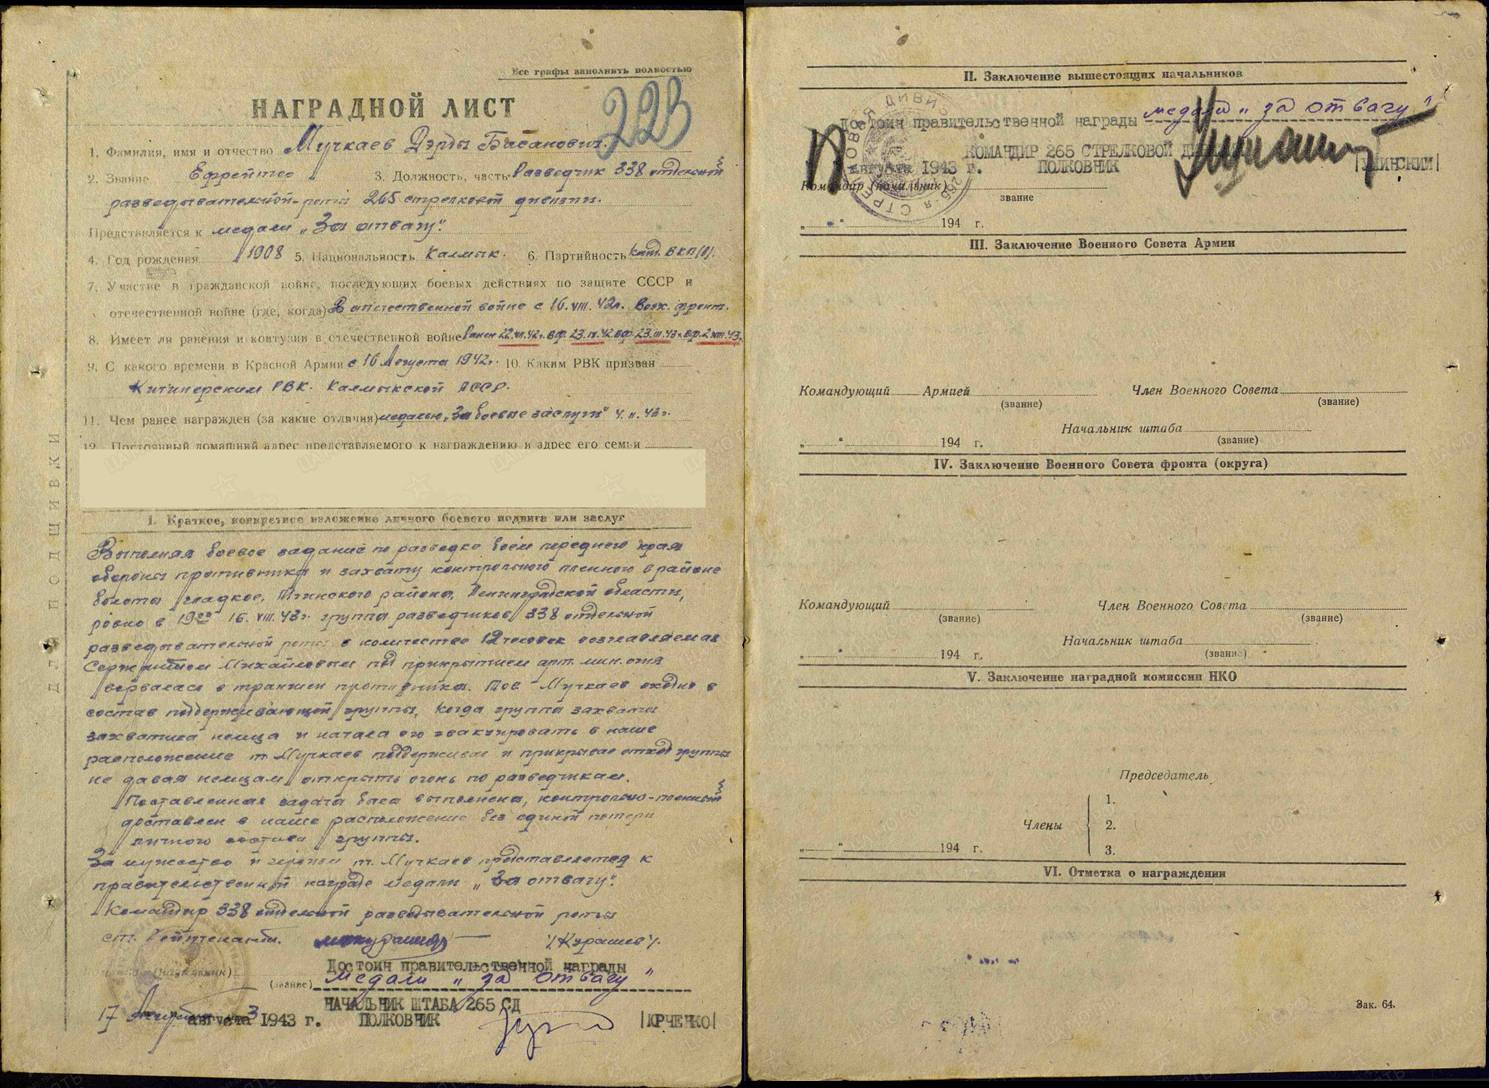 Все графы заполнить полностью
НАГРАДНОЙ ЛИСТ
223
1. Фамилия, имя и отчество Мучкаев Дэрды Басанович.
2. Звание Ефрейтор 3. Должность, часть Разведчик 338 отдельной
разведывательной роты 265 стрелковой дивизии.
Представляется к медали „За отвагу".
4. Год рождения 1908 5. Национальность Калмык. 6. Партийность Канд. ВКП(б).
7. Участие в гражданской войне, последующих боевых действиях по защите СССР и
отечественной войне (где, когда) В отечественной войне с 16.VIII.42г. Волх. фронт.
8. Имеет ли ранения и контузии в отечественной войне Ранен 23.IX.42 23.III.43г.
9. С какого времени в Красной Армии с 16 Августа 1942г. 10. Каким РВК призван
РВК. Калмыкской АССР.
11. Чем ранее награжден (за какие отличия) медалью „За боевые заслуги" 4.II.43г.
12. Постоянный домашний адрес представляемого к награждению и адрес его семьи
ДЛЯ ПОДШИВКИ
I. Краткое, конкретное изложение личного боевого подвига или заслуг
Выполняя боевое задание по разведке всем переднего края
обороны противника и захвату контрольного пленного в районе
болота гладкое, Мгинского района, Ленинградской области,
ровно в 19 00 16.VIII.43г. группа разведчиков 338 отдельной
разведывательной роты в количестве 12 человек возглавляемая
Сержантом Михайловым под прикрытием арт. мин. огня
ворвалась в траншеи противника. Тов. Мучкаев входил в
состав поддерживающей группы, когда группа захвата
захватила немца и начала его эвакуировать в наше
расположение т. Мучкаев поддерживал и прикрывал отход группы
не давая немцам открыть огонь по разведчикам.
Поставленная задача была выполнена, контрольно-пленный
доставлен в наше расположение без единой потери
личного состава группы.
За мужество и т. Мучкаев представляется к
правительственной награде медали „За отвагу".
Командир 338 отдельной разведывательной роты
ст. Лейтенант. /Курашев/.
Достоин правительственной награды
(звание) медали „за отвагу"
НАЧАЛЬНИК ШТАБА 265 СД
17 августа 1943 г. ПОЛКОВНИК |ЮРЧЕНКО|
II. Заключение вышестоящих начальников
Достоин правительственной награды медали „за отвагу"
КОМАНДИР 265 СТРЕЛКОВОЙ
августа 1943 г. ПОЛКОВНИК
Командир (начальник)
звание
„ " 194 г.
III. Заключение Военного Совета Армии
Командующий Армией Член Военного Совета
(звание) (звание)
Начальник штаба
„ " 194 г. (звание)
IV. Заключение Военного Совета фронта (округа)
Командующий Член Военного Совета
(звание) (звание)
Начальник штаба
„ " 194 г. (звание)
V. Заключение наградной комиссии НКО
Председатель
1.
Члены 2.
„ " 194 г. 3.
VI. Отметка о награждении
Зак. 64.